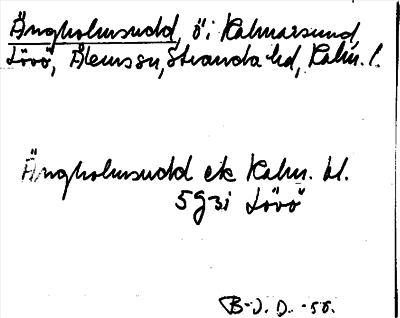 Ängholmsudd, ö i Kalmarsund,
Lövö, Ålems sn, Stranda hd, Kalm. l.
Ängholmsudd ek Kalm. bl.
5 g 3 i Lövö
B-J. D. -56.